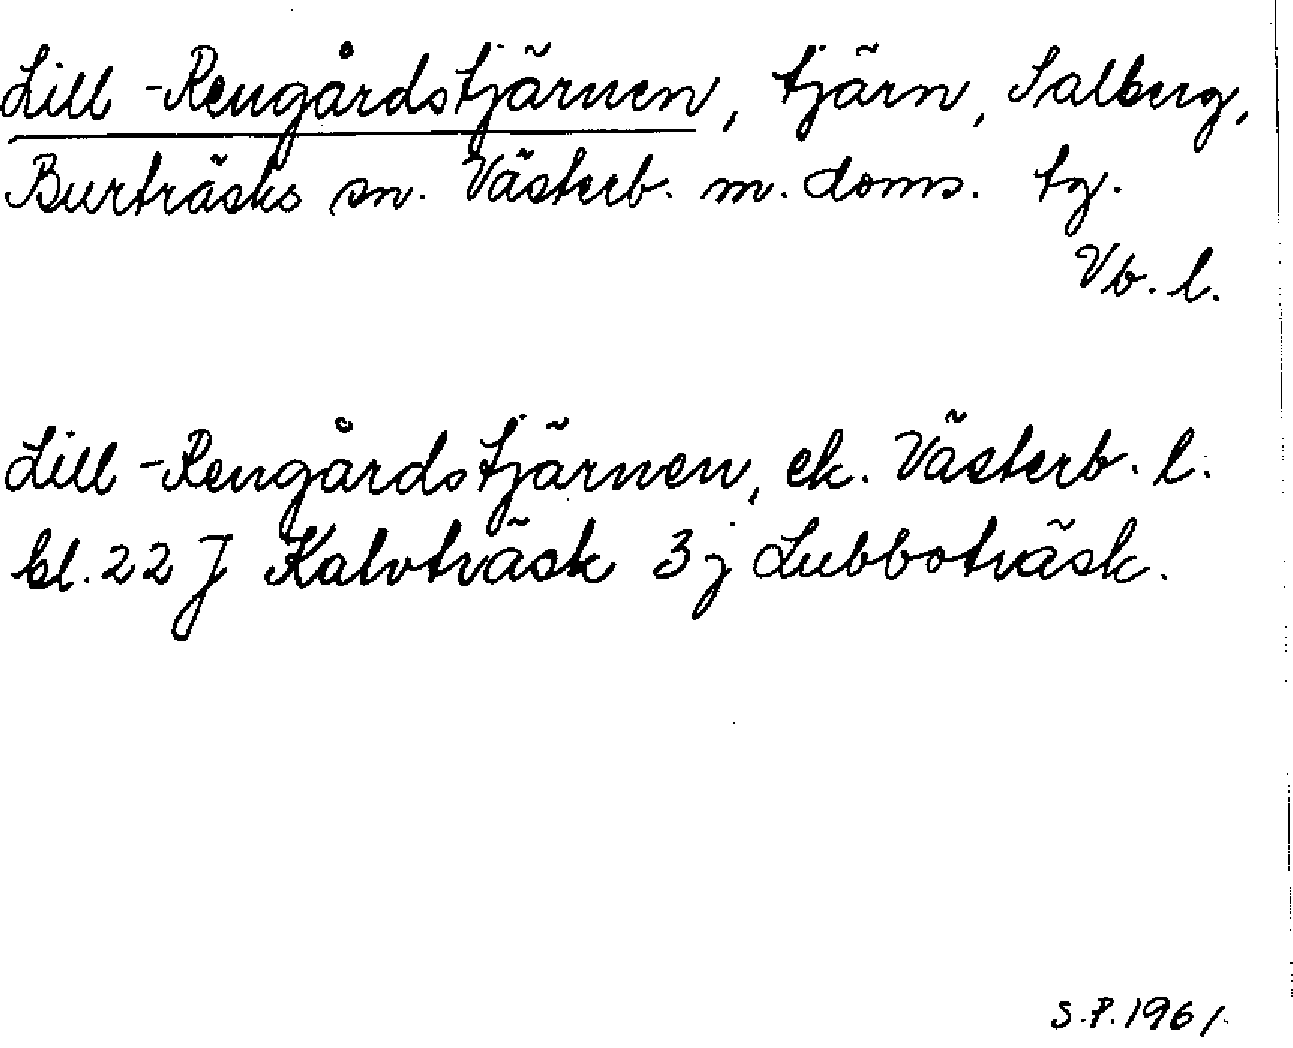 Lill-Rengårdstjärnen, tjärn, Salberg,
Burträsks sn. Västerb. m. doms. tg.
Vb. l.
Lill-Rengårdstjärnen, ek. Västerb. l.
bl. 22 J Kalvträsk 3 j Lubboträsk.
S.P. 1961